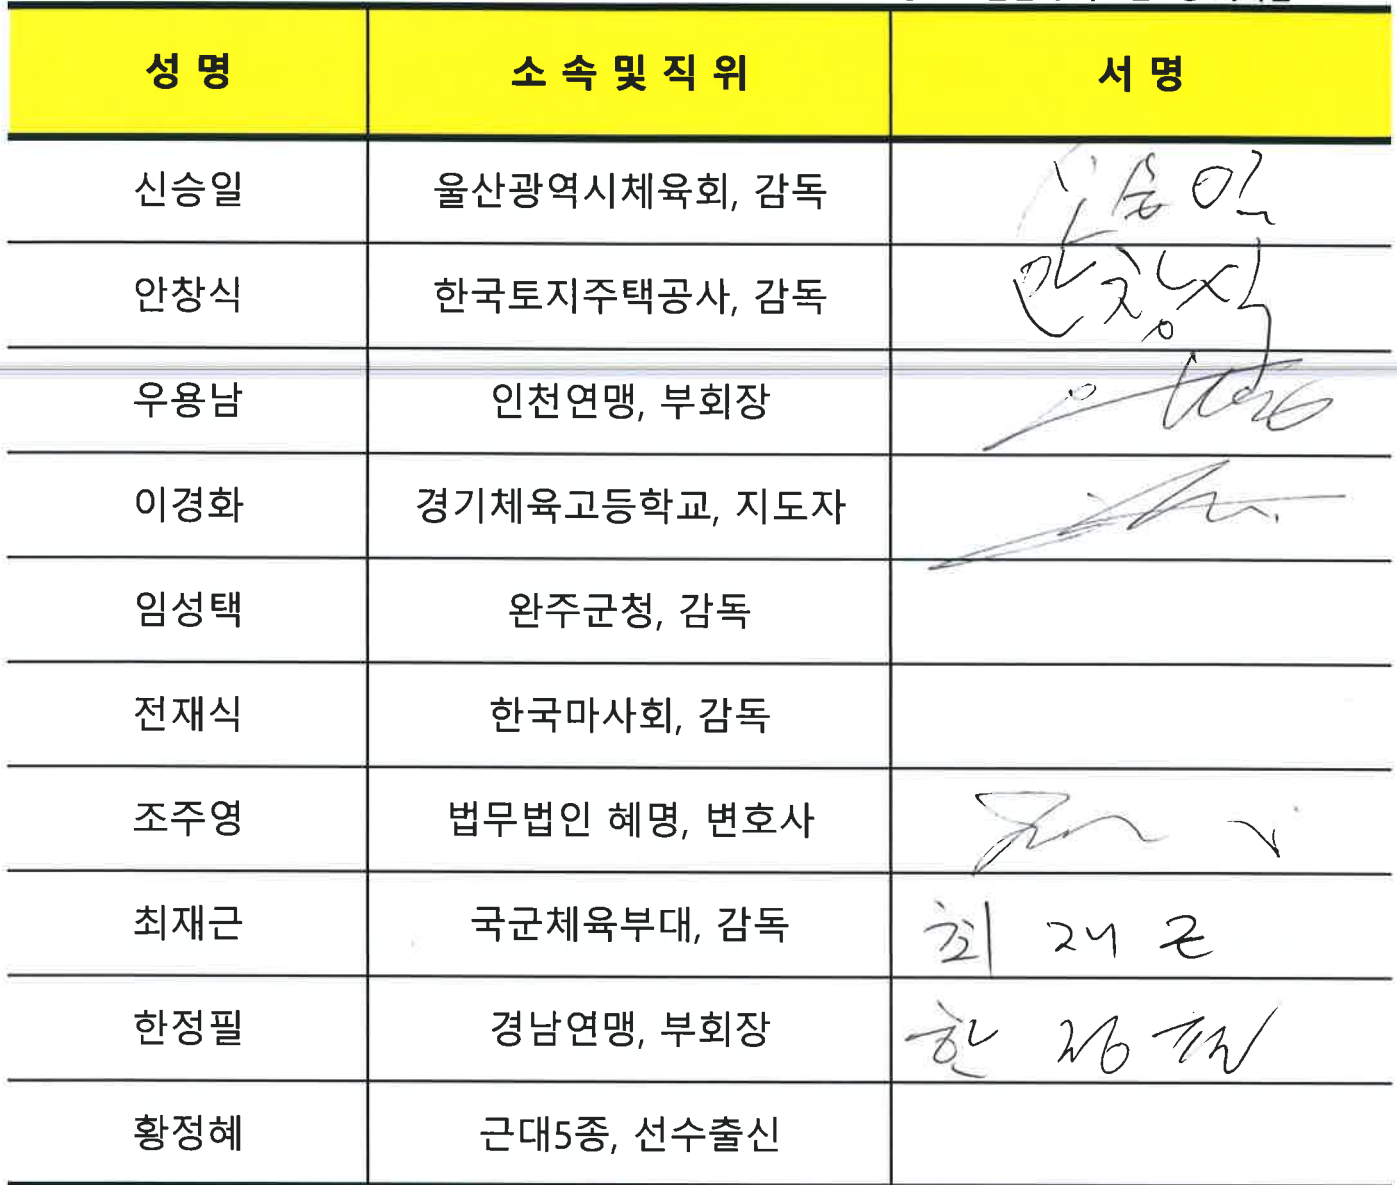 성 명 소 속 및 직 위 서 명
신승일 울산광역시체육회, 감독 신승일
안창식 한국토지주택공사, 감독 안창식
우용남 인천연맹, 부회장
이경화 경기체육고등학교, 지도자
임성택 완주군청, 감독
전재식 한국마사회, 감독
조주영 법무법인 혜명, 변호사
최재근 국군체육부대, 감독 최재근
한정필 경남연맹, 부회장 한정필
황정혜 근대5종, 선수출신